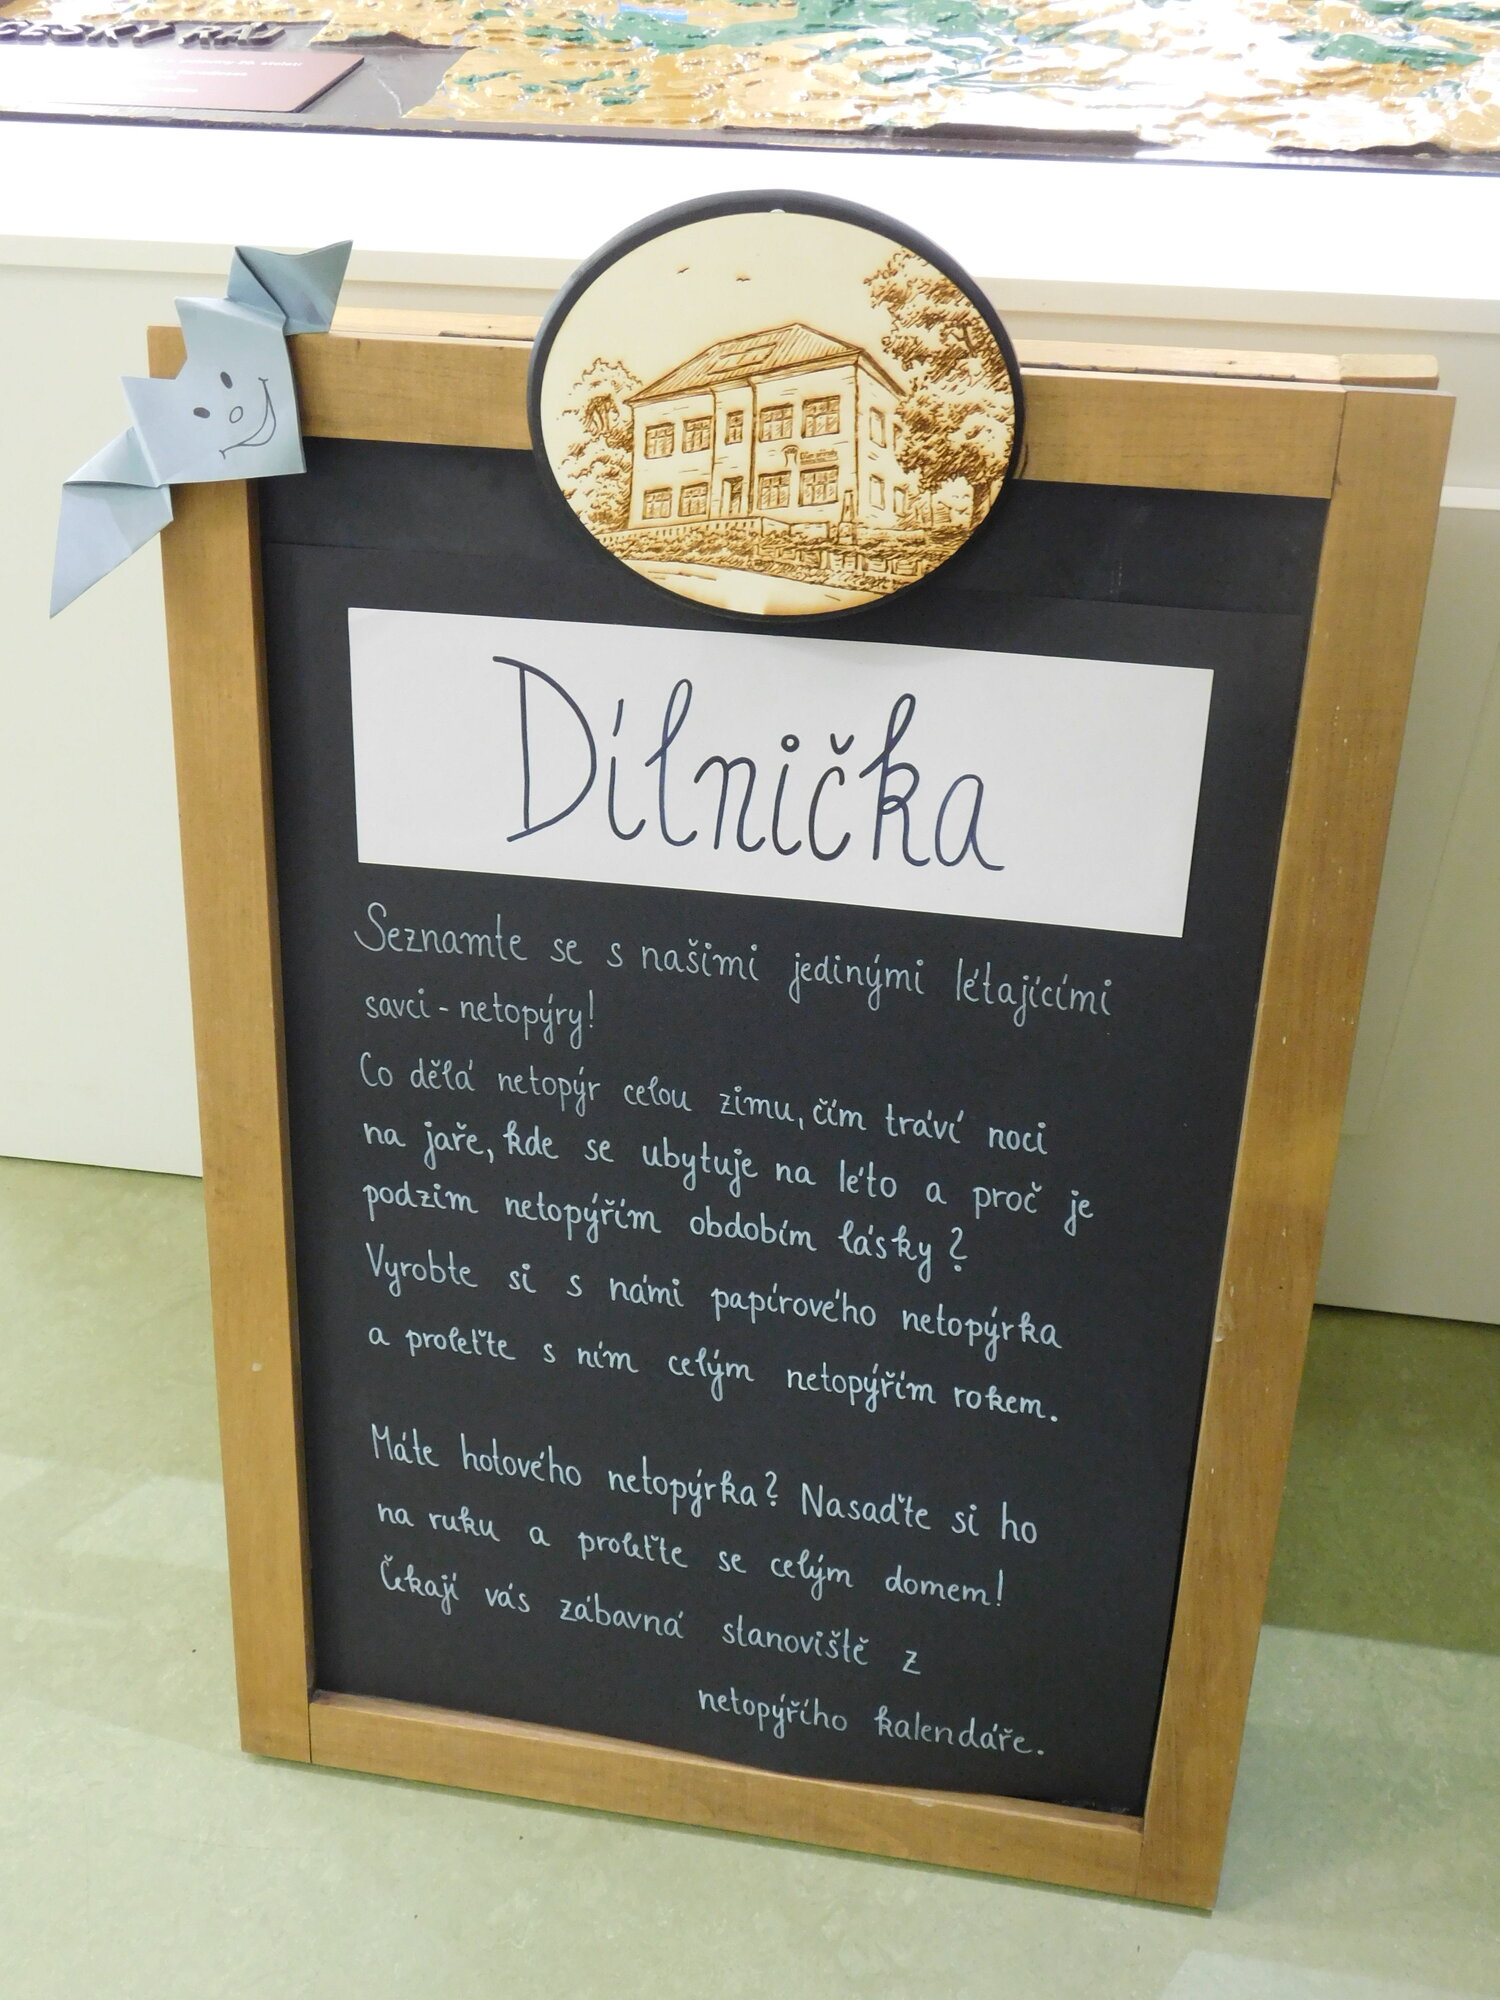 ČESKÝ RÁJ
Dílnička
Seznamte se s našimi jedinými létajícími
savci - netopýry!
Co dělá netopýr celou zimu, čím tráví noci
na jaře, kde se ubytuje na léto a proč je
podzim netopýřím obdobím lásky?
Vyrobte si s námi papírového netopýrka
a proleťte s ním celým netopýřím rokem.
Máte hotového netopýrka? Nasaďte si ho
na ruku a proleťte se celým domem!
Čekají vás zábavná stanoviště z
netopýřího kalendáře.